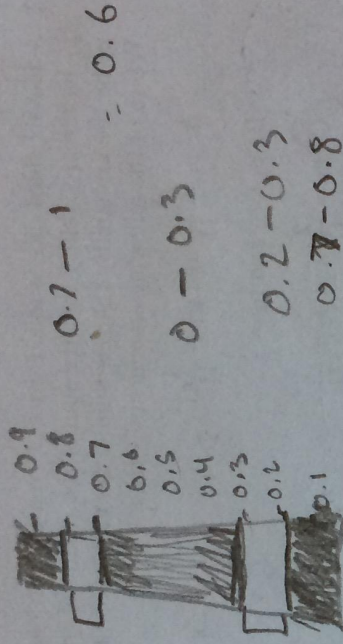 0.9
0.8
0.7
0.6
0.5
0.4
0.3
0.2
0.1
0.7 - 1
= 0.6
0 - 0.3
0.2 - 0.3
0.7 - 0.8